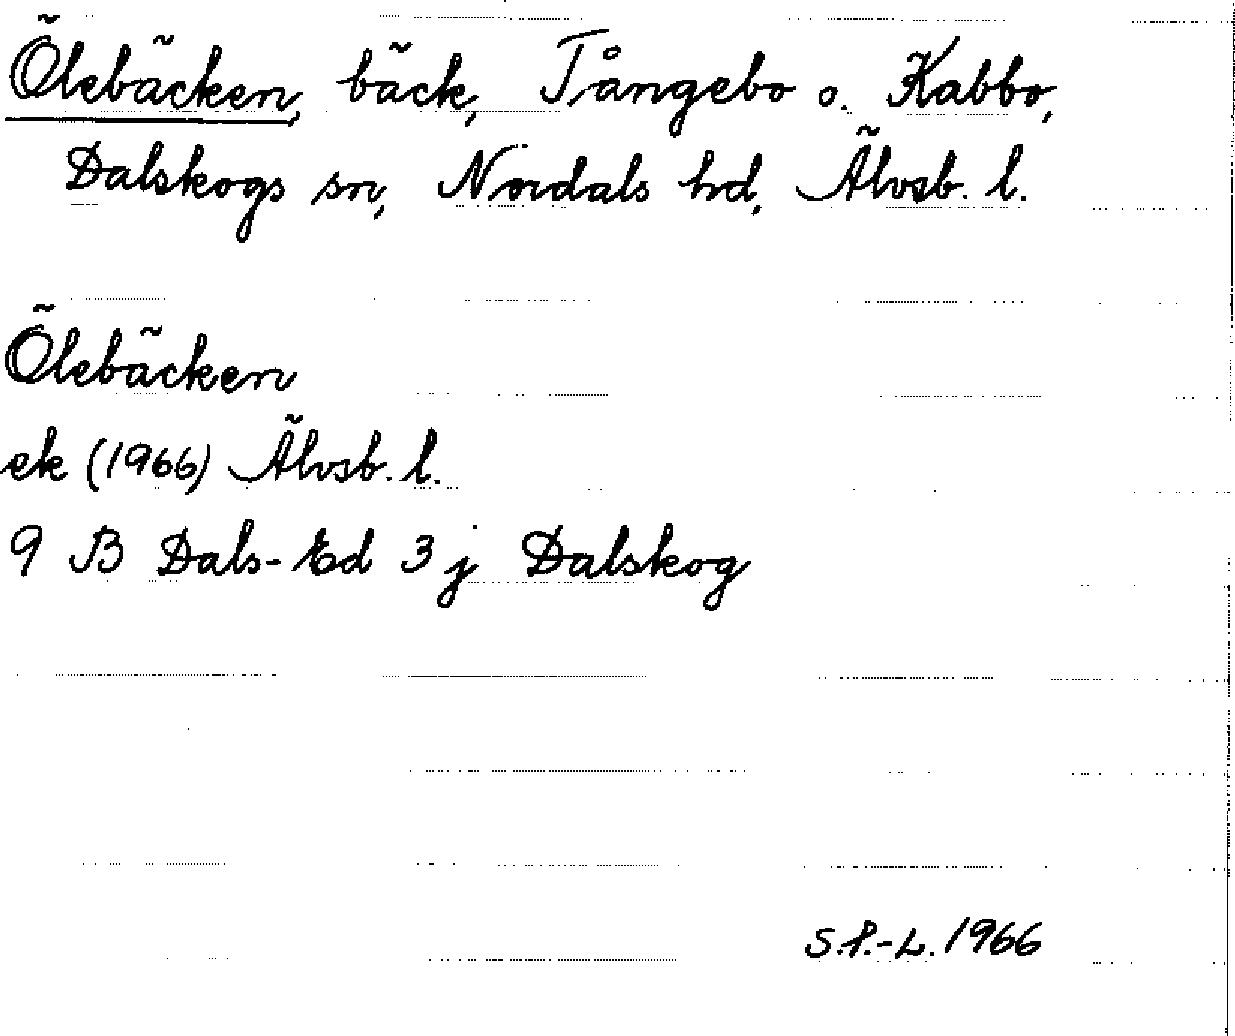 Ölebäcken, bäck, Tångebo o. Kabbo,
Dalskogs sn, Nordals hd, Älvsb. l.
Ölebäcken
ek (1966) Älvsb. l.
9 B Dals-Ed 3 j Dalskog
S.P.-L. 1966